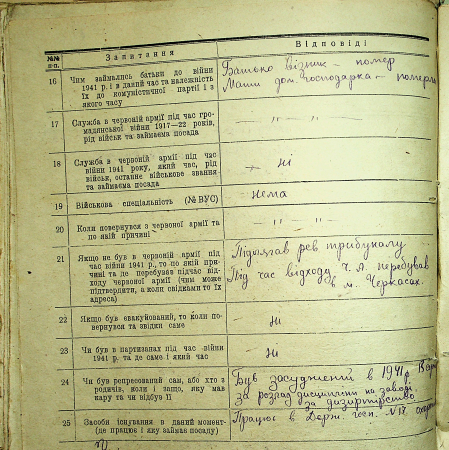 №№ п-п.
Запитання
Відповіді
16
Чим займались батьки до війни
1941 р. і в даний час та належність
їх до комуністичної партії і з
якого часу
Батько візник – помер
Мати дом. господарка – померла
17
Служба в червоній армії під час гро-
мадянської війни 1917—22 років,
рід військ та займаєма посада
— „ — „ —
18
Служба в червоній армії під час
війни 1941 року, який час, рід
військ, останнє військове звання
та займаєма посада
— ні
19
Військова спеціальність (№ ВУС)
нема
20
Коли повернувся з червоної армії та
по якій причині
— „ — „ —
21
Якщо не був в червоній армії під
час війни 1941 р., то по якій при-
чині та де перебував підчас від-
ходу червоної армії (чим може
підтвердити, а коли свідками то їх
адреса)
Підлягав рев. трибуналу
Під час відходу ч. А. перебував
в м. Черкасах.
22
Якщо був евакуйований, то коли по-
вернувся та звідки саме
— Ні
23
Чи був в партизанах під час війни
1941 р. та де саме і який час
— Ні
24
Чи був репресований сам, або хто з
родичів, коли і защо, яку мав
кару та чи відбув її
Був засуджений в 1941 р
за розлад дисципліни на заводі
за дизиртірство
25
Засоби існування в даний момент
(де працює і яку займає посаду)
Працює в Держ. госп. №17.